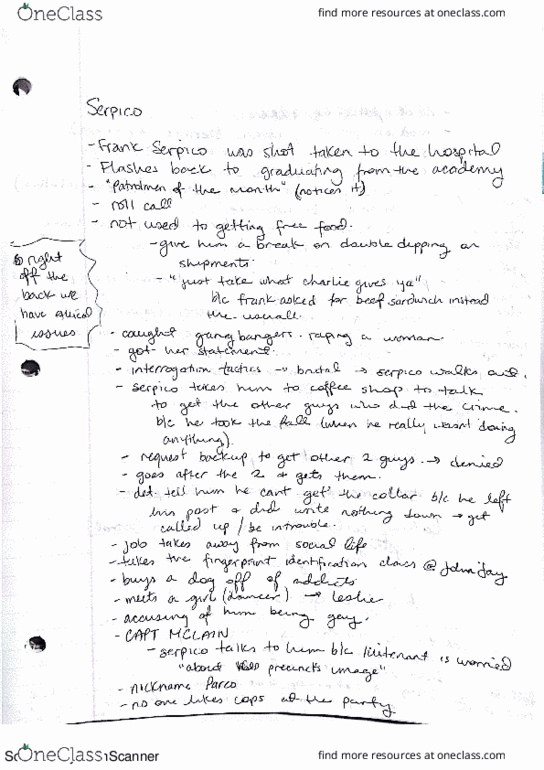 OneClass
find more resources at oneclass.com
Serpico
- Frank Serpico was shot taken to the hospital
- Flashes back to graduating from the academy
- "Patrolmen of the month" (notices it)
- roll call
- not used to getting free food.
- give him a break on double dipping on
shipments.
- "just take what charlie gives ya"
b/c frank asked for beef sandwich instead
the usuall.
right
off the
back we
have ethical
issues
- caught gang bangers raping a woman
- got her statement.
- interrogation tactics → brutal → serpico walks out.
- serpico takes him to coffee shop to talk
to get the other guys who did the crime.
b/c he took the fall (when he really wasnt doing
anything).
- request backup to get other 2 guys. → denied
- goes after the 2 + gets them.
- det. tell him he cant get the collar b/c he left
his post + did write nothing down → get
called up / be in trouble.
- job takes away from social life
- takes the fingerprint identification class @ John Jay
- buys a dog off of addicts
- meets a girl (dancer) → leslie
- accusing of him being gay.
- CAPT MCLAIN
- serpico talks to him b/c lieutenant is worried
"about precincts image"
- nickname Paco
- no one likes cops at the party.
OneClass
Scanner
find more resources at oneclass.com